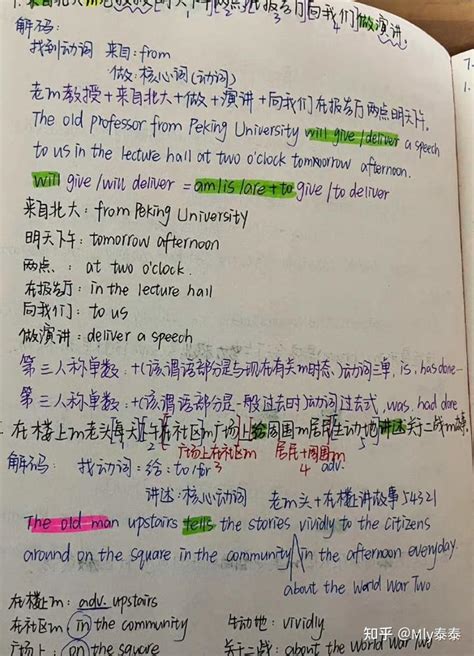 解码:
找到动词 来自:from
做:核心词(动词)
老m教授+来自北大+做+演讲+向我们在报告厅两点明天下午.
The old professor from Peking University will give/deliver a speech
to us in the lecture hall at two o'clock tomorrow afternoon.
will give/will deliver = am/is/are+to give/to deliver
来自北大: from Peking University
明天下午: tomorrow afternoon
两点: at two o'clock.
在报告厅: in the lecture hall
向我们: to us
做演讲: deliver a speech
第三人称单数:+(该谓语部分是与现在有关m时态)动词三单, is, has done
第三人称单数:+(该谓语部分是一般过去时)动词过去式, was, had done
在楼上m老头每天下午在社区m广场上给周围m居民生动地讲述关于二战m
1 2 3 5
广场上在社区m 居民+周围m
解码: 找动词:给:to/for 4 adv.
讲述:核心动词 老m头+在楼上讲故事54321
The old man upstairs tells the stories vividly to the citizens
around on the square in the community in the afternoon everyday.
about the world War Two
在楼上m: adv. upstairs
在社区m: in the community 生动地: vividly
广场上: on the square 关于二战: about the world war Two
知乎 @Mly泰泰